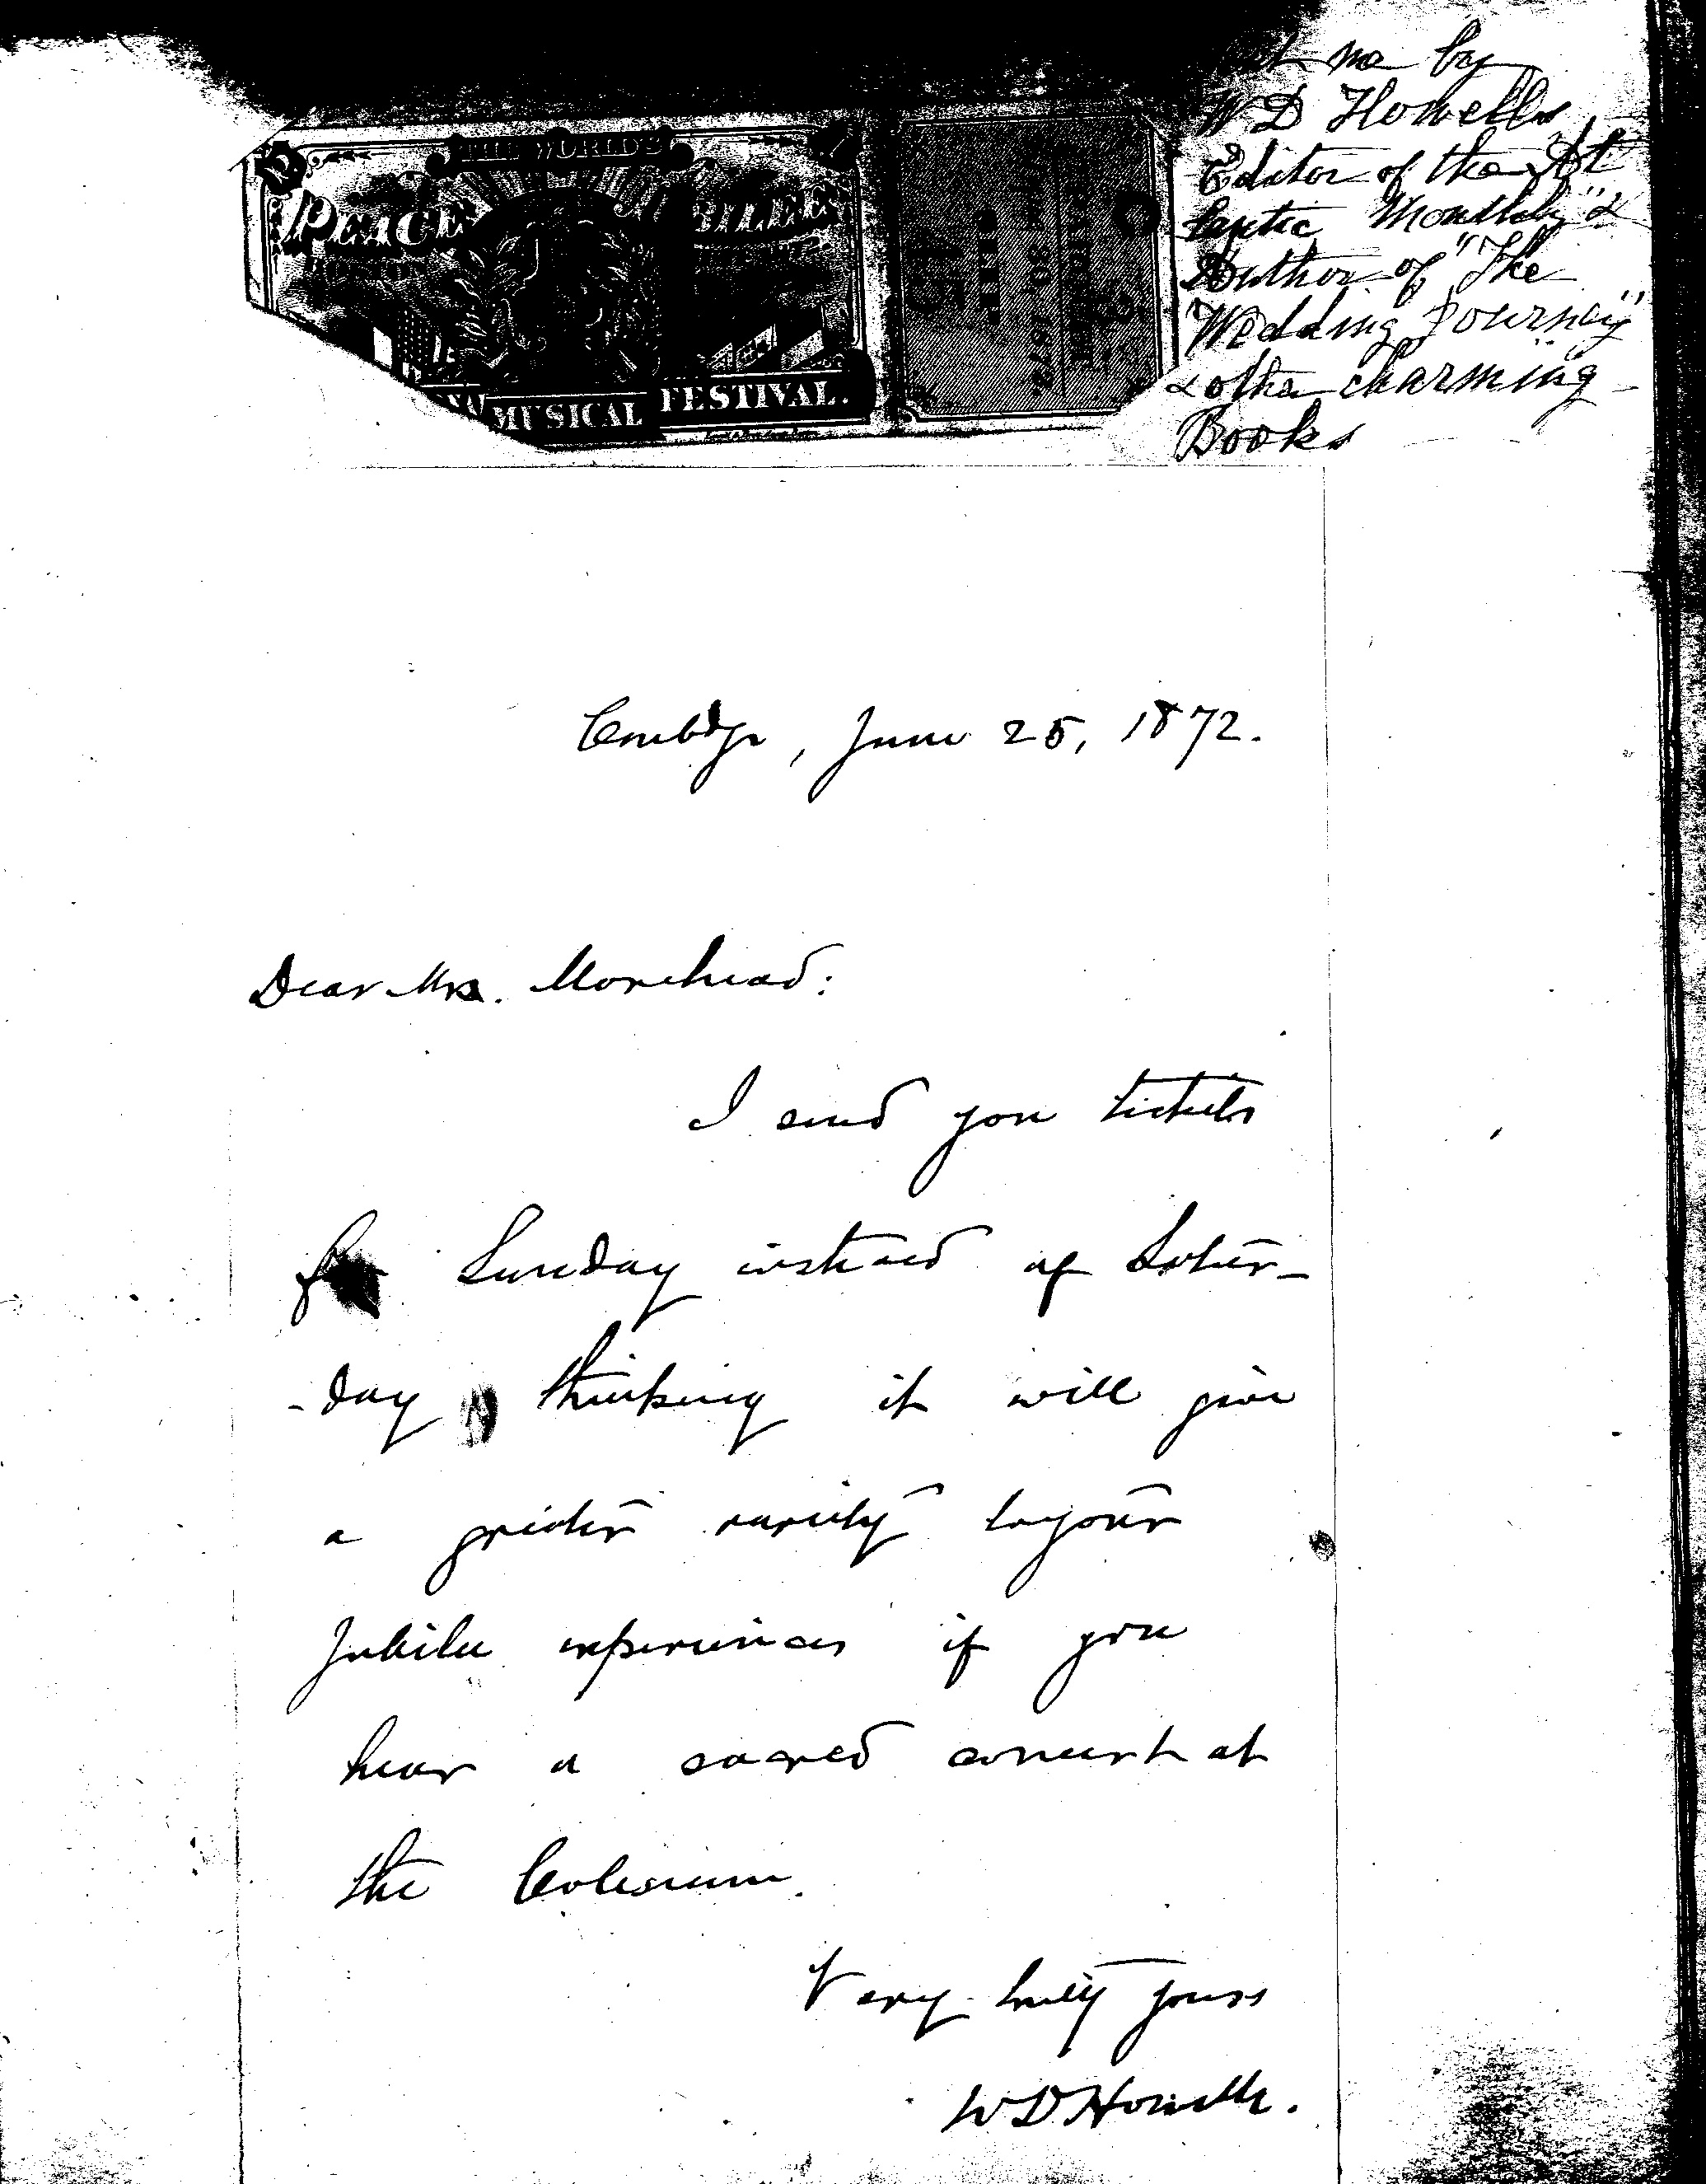 THE WORLD'S
PEACE JUBILEE
BOSTON
MUSICAL FESTIVAL.
30 1872
me by
W D Howells
Editor of the At
lantic Monthly" &
Author of "The
Wedding Journey"
& other charming
Books
Cambdge, June 25, 1872.
Dear Mrs. Morehead:
I send you tickets
for Sunday instead of Satur-
-day thinking it will give
a greater rarity to your
Jubilee experiences if you
hear a sacred concert at
the Coliseum.
Very truly yours
W D Howells.